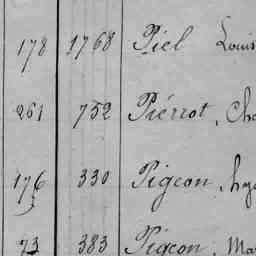 178 1768 Piel Louis
261 752 Piérrot, Cha
176 330 Pigeon, hya
73 383 Pigeon, Ma